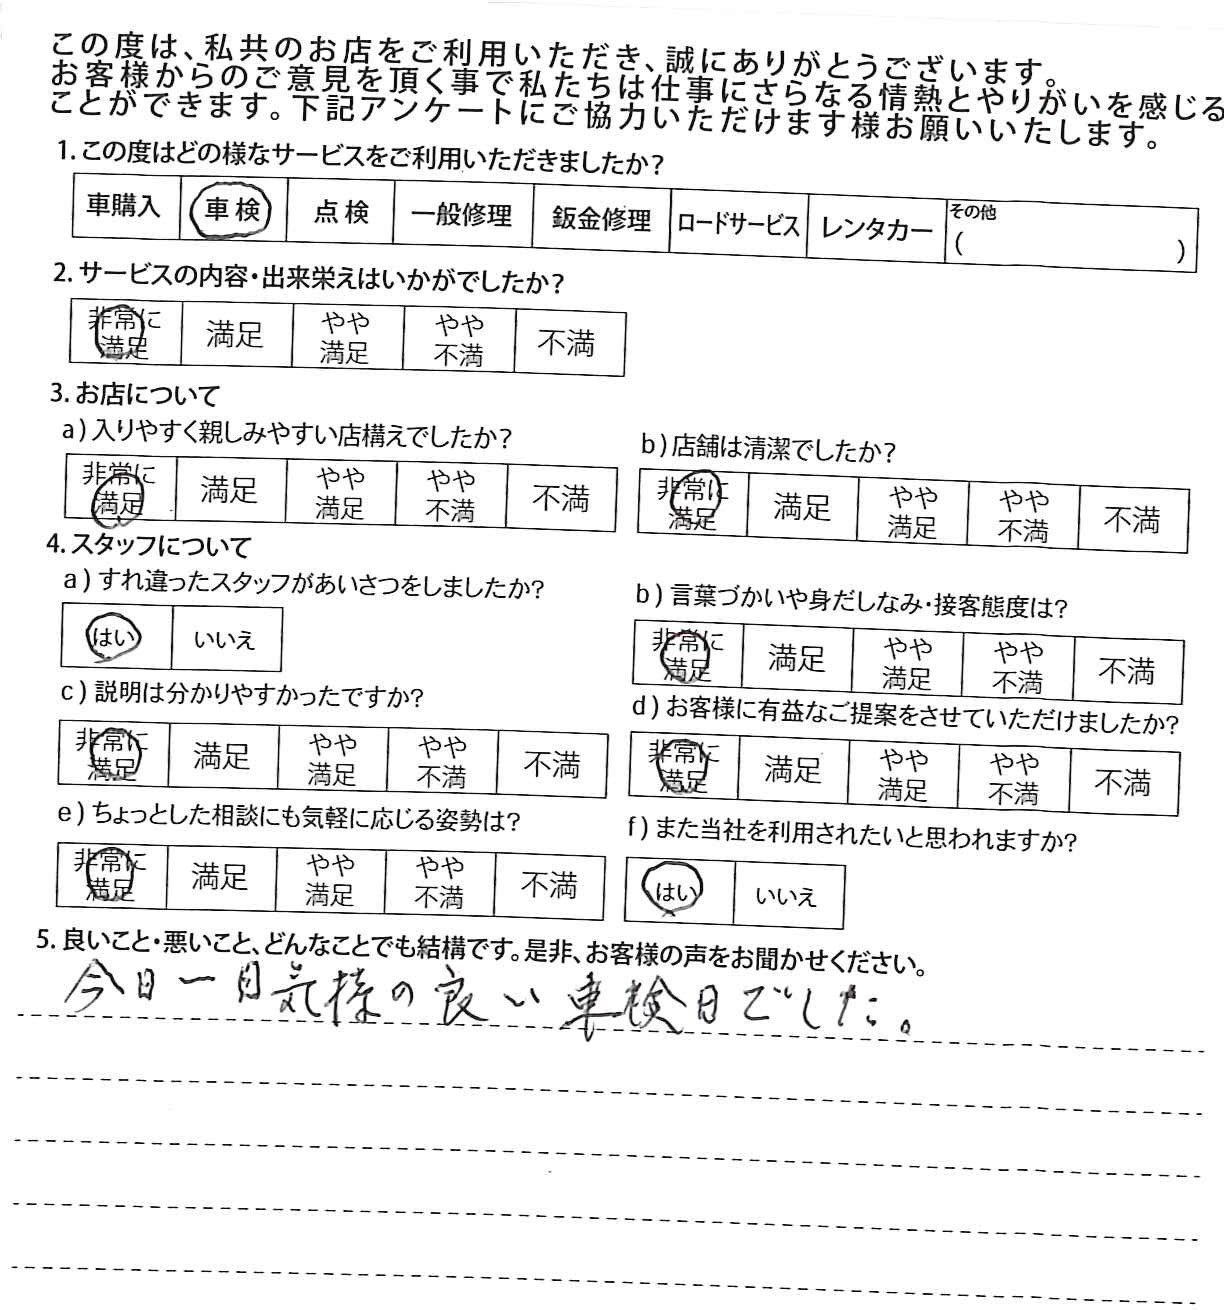 この度は、私共のお店をご利用いただき、誠にありがとうございます。
お客様からのご意見を頂く事で私たちは仕事にさらなる情熱とやりがいを感じる
ことができます。下記アンケートにご協力いただけます様お願いいたします。
1. この度はどの様なサービスをご利用いただきましたか?
車購入 車検 点検 一般修理 鈑金修理 ロードサービス レンタカー その他 ( )
2. サービスの内容・出来栄えはいかがでしたか?
非常に満足 満足 やや満足 やや不満 不満
3. お店について
a) 入りやすく親しみやすい店構えでしたか?
非常に満足 満足 やや満足 やや不満 不満
b) 店舗は清潔でしたか?
非常に満足 満足 やや満足 やや不満 不満
4. スタッフについて
a) すれ違ったスタッフがあいさつをしましたか?
はい いいえ
b) 言葉づかいや身だしなみ・接客態度は?
非常に満足 満足 やや満足 やや不満 不満
c) 説明は分かりやすかったですか?
非常に満足 満足 やや満足 やや不満 不満
d) お客様に有益なご提案をさせていただけましたか?
非常に満足 満足 やや満足 やや不満 不満
e) ちょっとした相談にも気軽に応じる姿勢は?
非常に満足 満足 やや満足 やや不満 不満
f) また当社を利用されたいと思われますか?
はい いいえ
5. 良いこと・悪いこと、どんなことでも結構です。是非、お客様の声をお聞かせください。
今日一日気様の良い車検日でした。